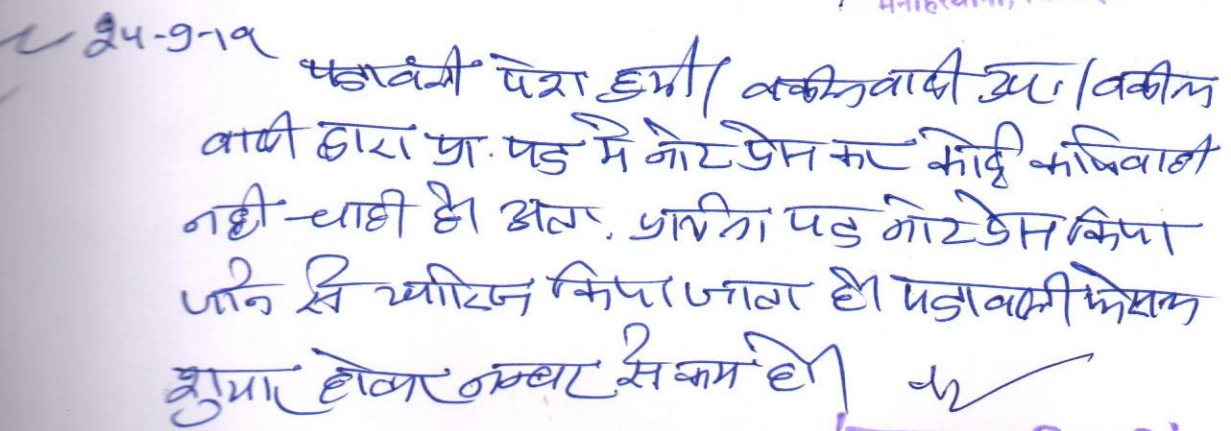 24-9-19
पत्रावली पेश हुयी। वकील वादी उप.। वकील
वादी द्वारा प्रा. पत्र मे नोट प्रेस कर कोई कार्यवाही
नही चाही है। अत. प्रार्थना पत्र नोट प्रेस किया
जाने से खारिज किया जाता है। पत्रावली फेसल
शुमार होकर नम्बर से कम हो।